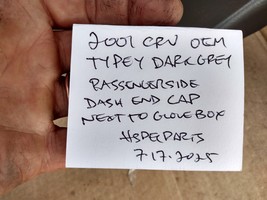 2001 CRV OEM
TYPE Y DARK GREY
PASSENGERSIDE
DASH END CAP
NEXT TO GLOVE BOX
HSPECPARTS
7.17.2025